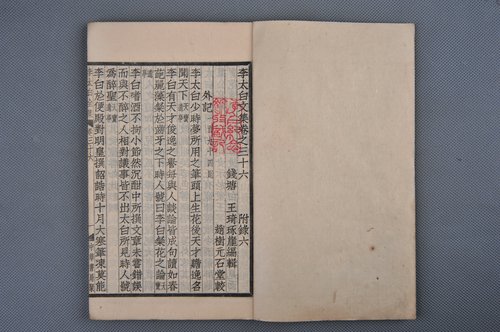 李太白文集卷之三十六　附錄六
錢塘　王琦琢崖編輯
趙樹元石堂較
外記
李太白少時夢所用之筆頭上生花後天才贍逸名
聞天下
李白有天才俊逸之譽每與人談論皆成句讀如春
葩麗藻粲於齒牙之下時人號曰李白粲花之論
李白嗜酒不拘小節然沉酣中所撰文章未嘗錯誤
而與不醉之人相對議事皆不出太白所見時人號
為醉聖
李白於便殿對明皇撰詔誥時十月大寒筆凍莫能